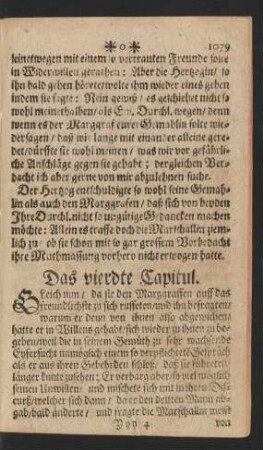 ❊ o ❊ 1079
seinetwegen mit einem so vertrauten Freunde solte
in Widerwillen gerathen: Aber die Hertzogin/ so
ihn bald gehen hörete/ wolte ihm wieder eines geben
indem sie sagte: Nein gewiß/ es geschiehet nicht so
wohl meinethalben/ als Ew. Durchl. wegen/ denn
wenn es der Marggraf eurer Gemahlin solte wie-
dersagen/ daß wir so lange mit einander alleine gere-
det/ dürffte sie wohl meinen/ was wir vor gefährli-
che Anschläge gegen sie gehabt; dergleichen Ver-
dacht ich aber gerne von mir abzulehnen suche.
Der Hertzog entschuldigte so wohl seine Gemah-
lin als auch den Marggrafen/ daß sich von beyden
Ihre Durchl. nicht so ungütige Gedancken machen
möchte: Allein es traffe doch die Marschallin ziem-
lich zu/ ob sie schon mit so gar grossem Vorbedacht
ihre Muthmassung vorhero nicht erwogen hatte.
Das vierdte Capitul.
GLeich nun/ da sie den Marggraffen auffs
freundlichste zu sich ruffeten/ und ihn befragten/
warum er denn von ihnen also abgewichen/
hatte er in Willens gehabt/ sich wieder zu ihnen zu be-
geben/ weil die in seinem Gemüth zu sehr wachsende
Eyfersucht unmöglich einem so verpflichteten Gespräch
als er aus ihren Gebehrden schloß/ daß sie führeten/
länger kunte zusehen; Er verbarg aber/ so viel möglich
seinen Unwillen/ und mischete sich mit in ihre Dis-
curs/ welcher sich dann/ da er den dritten Mann ab-
gab/ bald änderte/ und fragte die Marschallin meist
Yyy 4 von